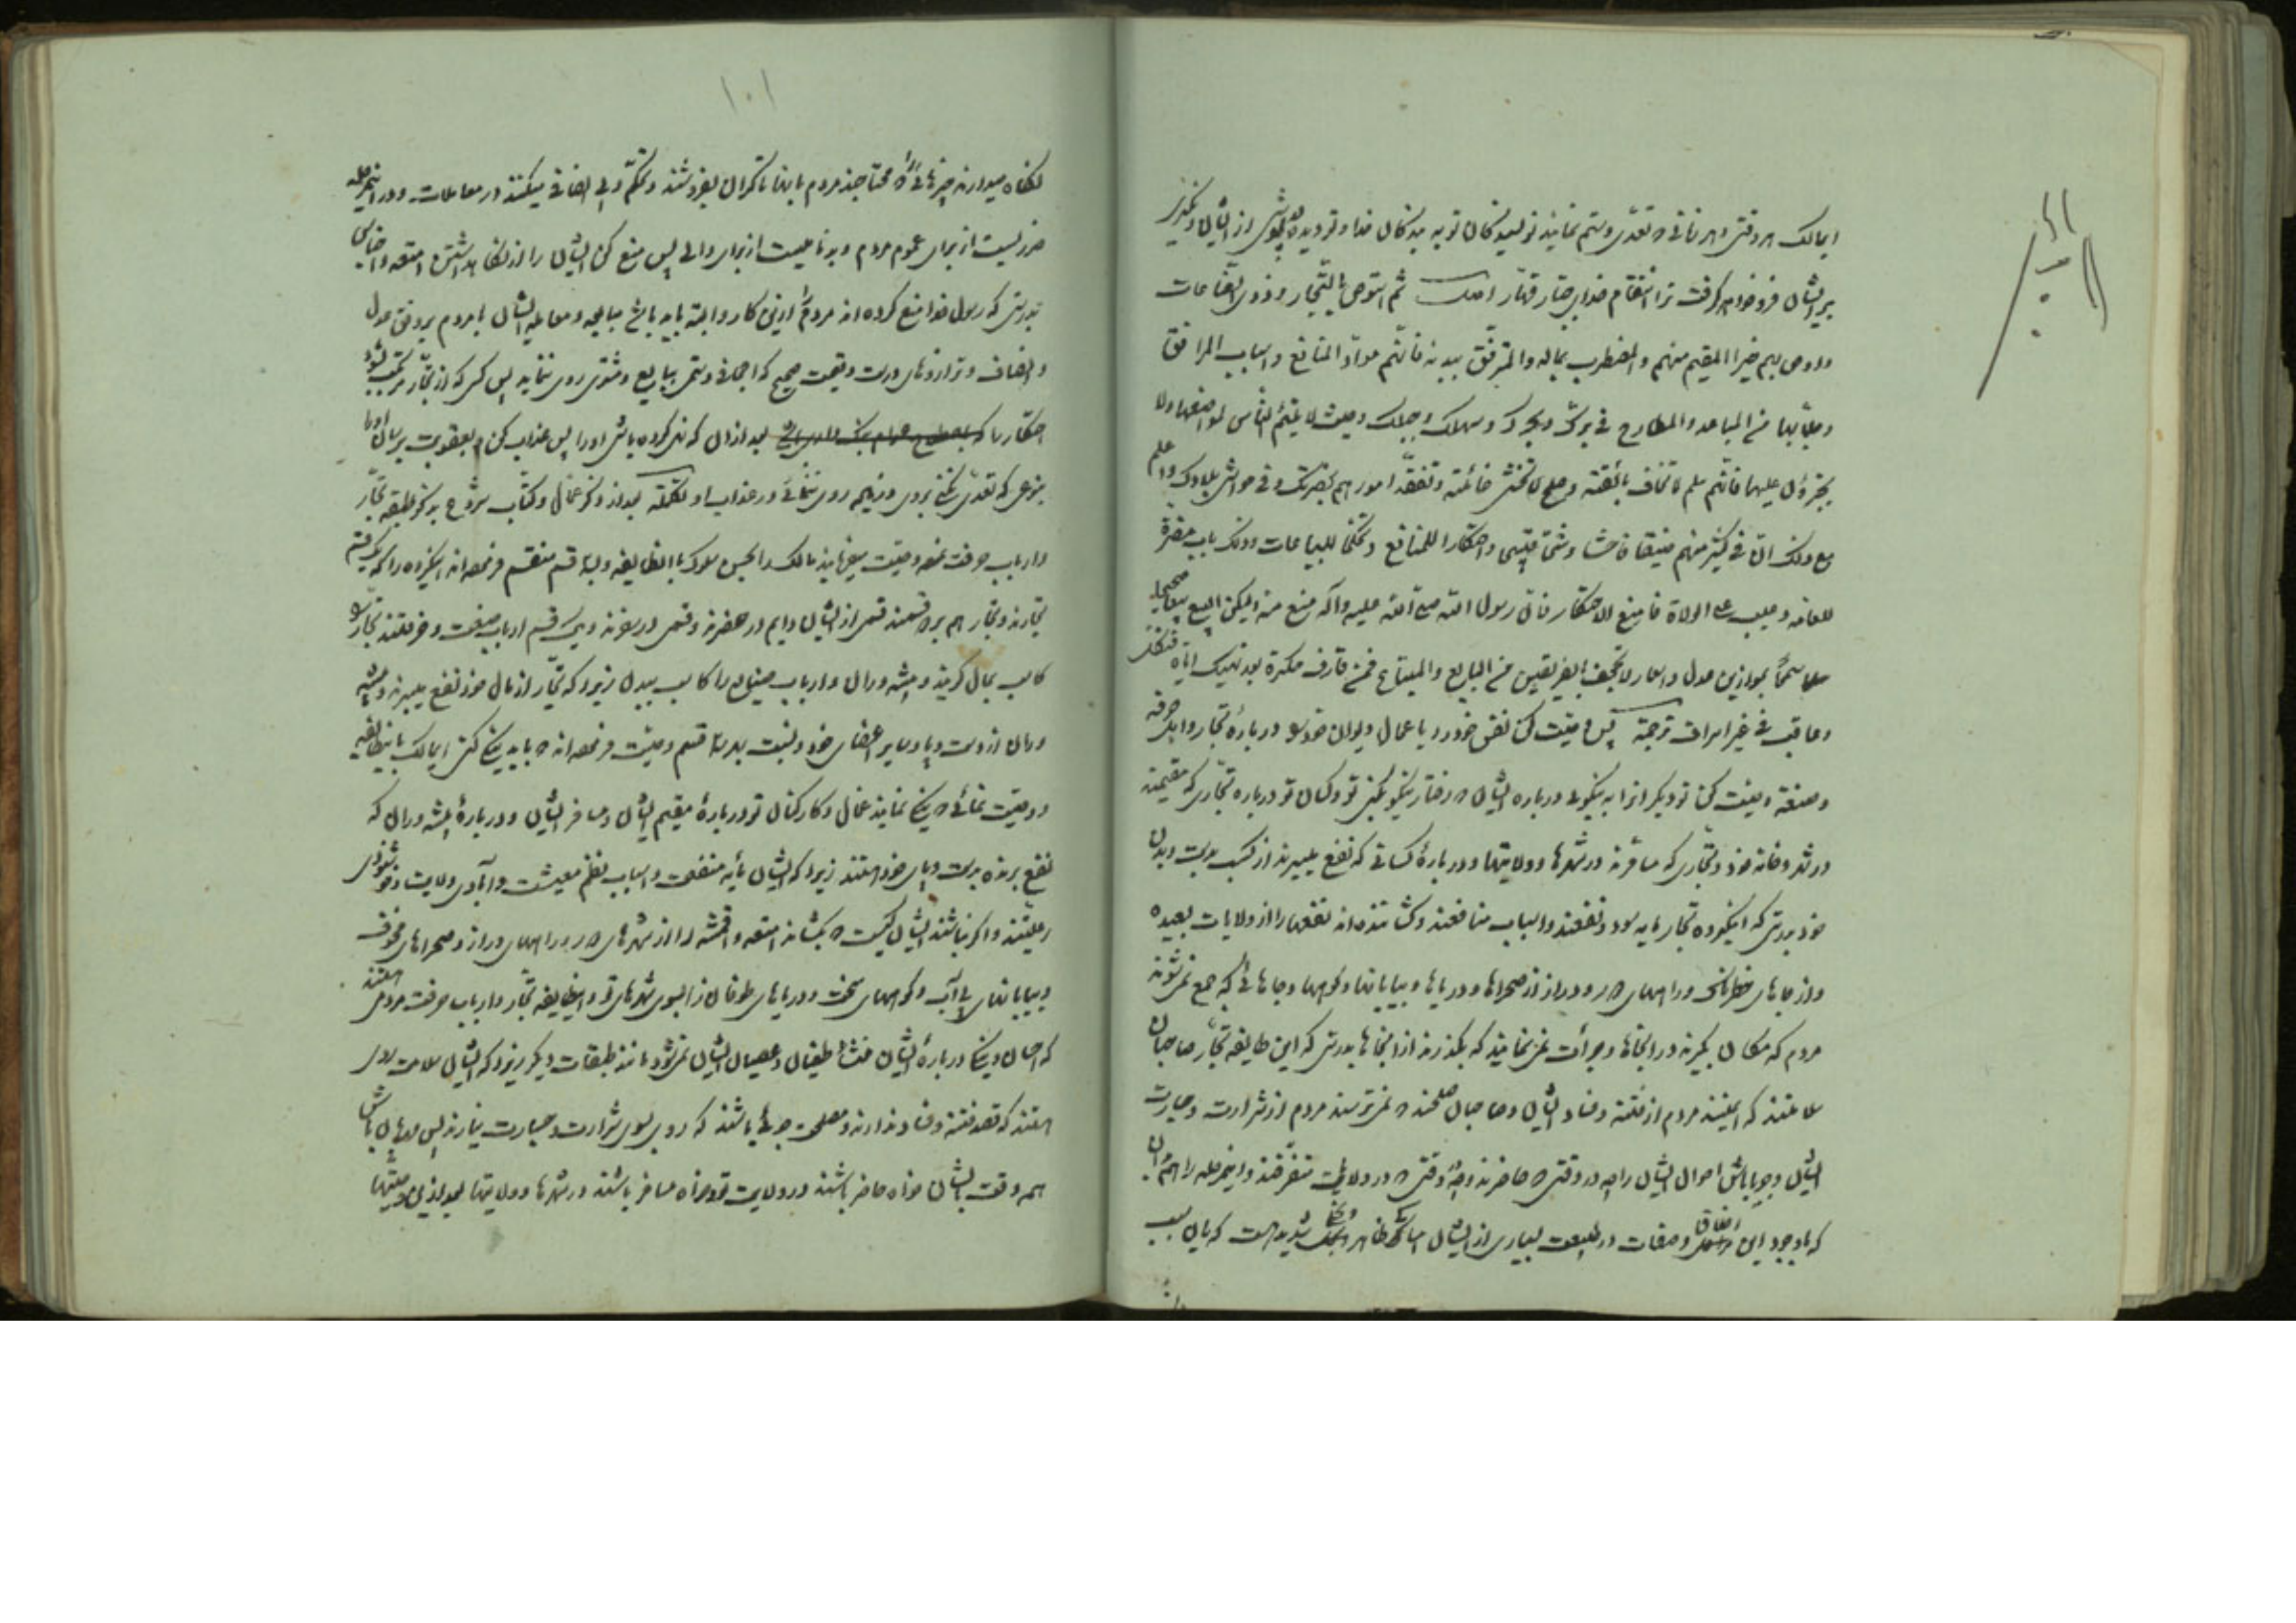 ایمالک هر وقتی و هر زمانی که تعدی و ستم نمایند نویسندکان تو به بندکان خدا و تو دیده بپوشی از ایشان و نکیری
بر ایشان فرو خواهد کرفت ترا انتقام خدای جبار قهار اصل ثم استوص بالتجار و ذوی الصناعات
و اوص بهم خیرا المقیم منهم والمضطرب بماله والمترفق ببدنه فانهم مواد المنافع واسباب المرافق
وجلابها من المباعد والمطارح فی برک وبحرک وسهلک وجبلک وحیث لا یلتئم الناس لمواضعها ولا
یجترؤن علیها فانهم سلم لا تخاف بائقته وصلح لا تخشی غائلته وتفقد امورهم بحضرتک وفی حواشی بلادک واعلم
مع ذلک ان فی کثیر منهم ضیقا فاحشا وشحا قبیحا واحتکارا للمنافع وتحکما للبیاعات وذلک باب مضرة
للعامة وعیب علی الولاة فامنع الاحتکار فان رسول الله صلی الله علیه وآله منع منه ولیکن البیع بیعا
سمحا بموازین عدل واسعار لا تجحف بالفریقین من البایع والمبتاع فمن قارف حکرة بعد نهیک ایاه فنکل
وعاقب فی غیر اسراف ترجمة پس وصیت کن نفس خود را با عمال دیوان خود در بارهٔ تجار و اهل حرفه
وصنعة وصیت کن تو دیکرانرا به نیکوئی در باره ایشان که رفتار نیکو کنی تو وکسان تو درباره تجاری که مقیمند
در شهر و خانه خود و تجاری که مسافرند در شهرها و ولایتها و در بارهٔ کسانی که نفع میبرند از کسب بدست و بدن
خود بدرستی که اینکروه تجار مایه سود و نفعند و اسباب منافعند و کشاننده اند نفعها را از ولایات بعیده
و از جاهای خطرناک و راههای دور و دراز از صحراها و دریاها و بیابانها و کوهها و جاهائی که جمع نمیشوند
مردم که مکان بکیرند در انجاها و جرأت نمی نمایند که بکذرند از انجاها بدرستی که این طایفه تجار صاحبان
سلامتند که ایمنند مردم از فتنه و فساد ایشان و صاحبان صلحند که نمی ترسند مردم از شرارت و جسارت
ایشان و جویا باش احوال ایشان را چه در وقتی که حاضرند و چه وقتی که در ولایت متفرقند و اینمرحله را هم بدان
که با وجود این اخلاق و صفات در طبیعت بسیاری از ایشان امساک ظاهر و بخل شدید است که باین سبب
۱۰۱
نکاه میدارند چیزهائی را که محتاجند مردم بانها تا کران بفروشند و تحکم و بی انصافی میکنند در معاملات و در اینمرحله
ضرریست از برای عموم مردم و بدنامیست از برای والی پس منع کن ایشان را از نکاهداشتن امتعه و اجناس
بدرستی که رسول خدا منع کرده اند مردم را ازین کار و البته باید باشد مبایعه و معامله ایشان با مردم بر وفق عدل
و انصاف و ترازوهای درست و قیمت صحیح که اجحاف و ستمی ببایع و مشتری روی ننماید پس کسی که از تجار مرتکب شود
احتکار را بعد از ان که نهی کرده باشی او را پس عذاب کن و بعقوبت برسان او را
بنوعی که تعدی نکنی بروی و زیاده روی ننمائی در عذاب او تکملة بعد از ذکر عمال و کتاب شروع بذکر طبقه تجار
و ارباب حرفت نموده وصیت میفرمایند مالک را بحسن سلوک با انطایفه و به قسم منقسم فرموده اند اینکروه را که یک قسم
تجارند و تجار هم بر دو قسمند قسمی از ایشان دایم در حضرند و قسمی در سفرند و یک قسم ارباب صنعت و حرفتند تجار را
کاسب بمال کویند و پیشه وران و ارباب صنایع را کاسب ببدن زیرا که تجار از مال خود نفع میبرند و پیشه
وران از دست و پا و سایر اعضای خود و نسبت بهر سه قسم وصیت فرموده اند که باید نیکی کنی ایمالک باینطایفه
و وصیت نمائی که نیکی نمایند عمال و کارکنان تو دربارهٔ مقیم ایشان و مسافر ایشان و دربارهٔ پیشه وران که
نفع برنده بدست و پای خود هستند زیرا که ایشان مایه منفعت و اسباب نظم معیشت و آبادی ولایت و خوشنودی
رعیتند و اکر نباشند ایشان کیست که بکشاند امتعه و اقمشه را از شهرهای دور و راههای دراز و صحراهای مخوف
و بیابانهای بی آب و کوههای سخت و دریاهای طوفان زا بسوی شهرهای تو و اینطایفه تجار و ارباب حرفت مردمی هستند
که احسان و نیکی دربارهٔ ایشان منشأ طغیان و عصیان ایشان نمیشود مانند طبقات دیکر زیرا که ایشان سلامت رو
هستند که قصد فتنه و فساد ندارند و مصلحت جوها باشند که روی بسوی شرارت و جسارت نیارند پس مهربان باش
همه وقت بایشان خواه حاضر باشند در ولایت تو و خواه مسافر باشند در شهرها و ولایتها بعد از این وصیتها